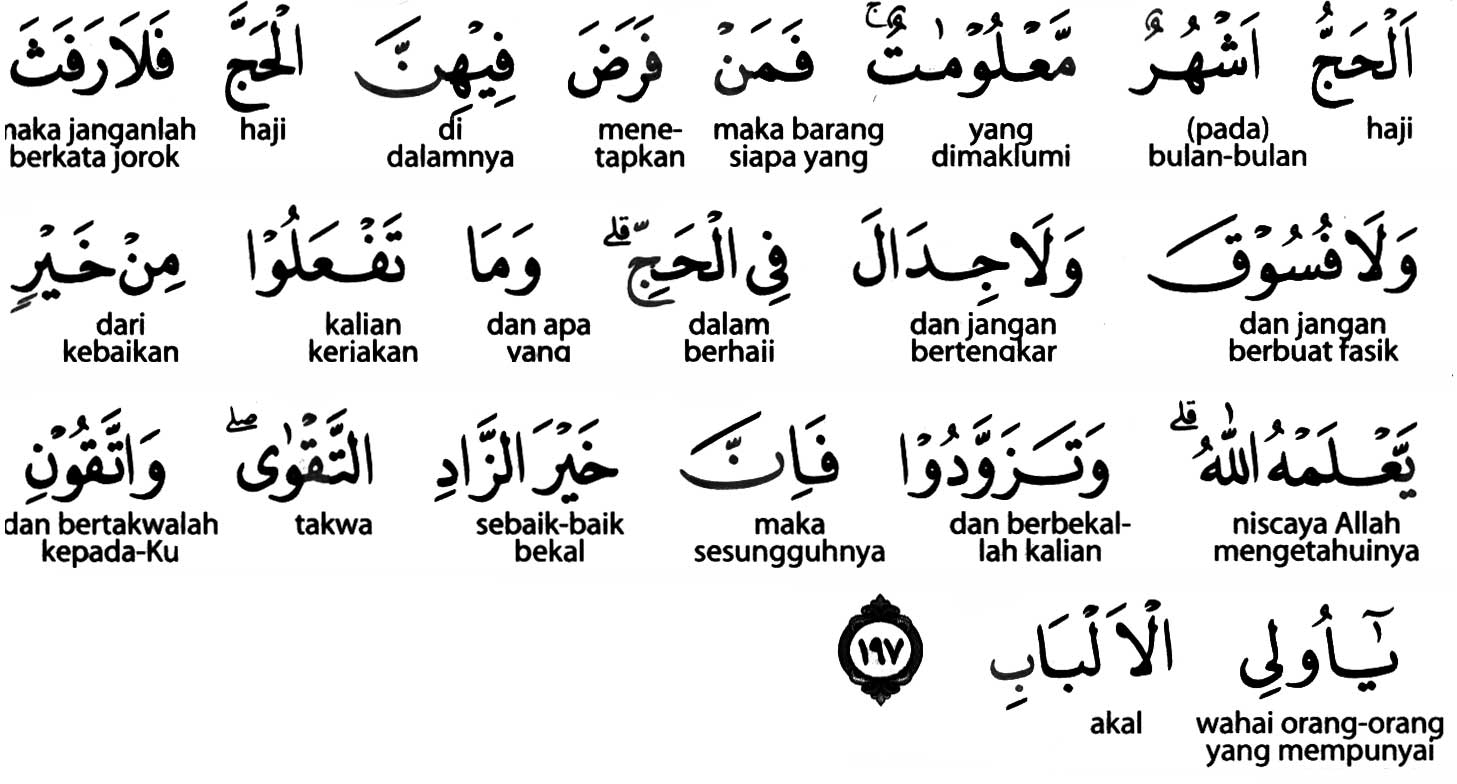 اَلْحَجُّ اَشْهُرٌ مَّعْلُوْمٰتٌۚ فَمَنْ فَرَضَ فِيْهِنَّ الْحَجَّ فَلَا رَفَثَ
haji (pada) bulan-bulan yang dimaklumi maka barang siapa yang mene-tapkan di dalamnya haji naka janganlah berkata jorok
وَلَا فُسُوْقَ وَلَا جِدَالَ فِى الْحَجِّۗ وَمَا تَفْعَلُوْا مِنْ خَيْرٍ
dan jangan berbuat fasik dan jangan bertengkar dalam berhaji dan apa yang kalian kerjakan dari kebaikan
يَّعْلَمْهُ اللّٰهُۗ وَتَزَوَّدُوْا فَاِنَّ خَيْرَ الزَّادِ التَّقْوٰىۖ وَاتَّقُوْنِ
niscaya Allah mengetahuinya dan berbekal-lah kalian maka sesungguhnya sebaik-baik bekal takwa dan bertakwalah kepada-Ku
يٰٓاُولِى الْاَلْبَابِ ١٩٧
wahai orang-orang yang mempunyai akal